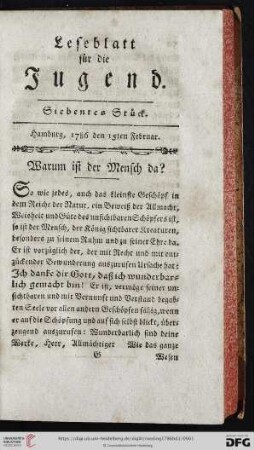 Leseblatt
für die
Jugend.
Siebentes Stück.
Hamburg, 1786 den 15ten Februar.
Warum ist der Mensch da?
So wie jedes, auch das kleinste Geschöpf in
dem Reiche der Natur, ein Beweiß der Allmacht,
Weisheit und Güte des unsichtbaren Schöpfers ist,
so ist der Mensch, der König sichtbarer Kreaturen,
besonders zu seinem Ruhm und zu seiner Ehre da.
Er ist vorzüglich der, der mit Recht und mit ent-
zückender Bewunderung auszurufen Ursache hat:
Ich danke dir Gott, daß ich wunderbar-
lich gemacht bin! Er ist, vermöge seiner un-
sichtbaren und mit Vernunft und Verstand begab-
ten Seele vor allen andern Geschöpfen fähig, wenn
er auf die Schöpfung und auf sich selbst blickt, über-
zeugend auszurufen: Wunderbarlich sind deine
Werke, Herr, Allmächtiger Wie das ganze
G Wesen
UNIVERSITÄTS-
BIBLIOTHEK
HEIDELBERG
DFG